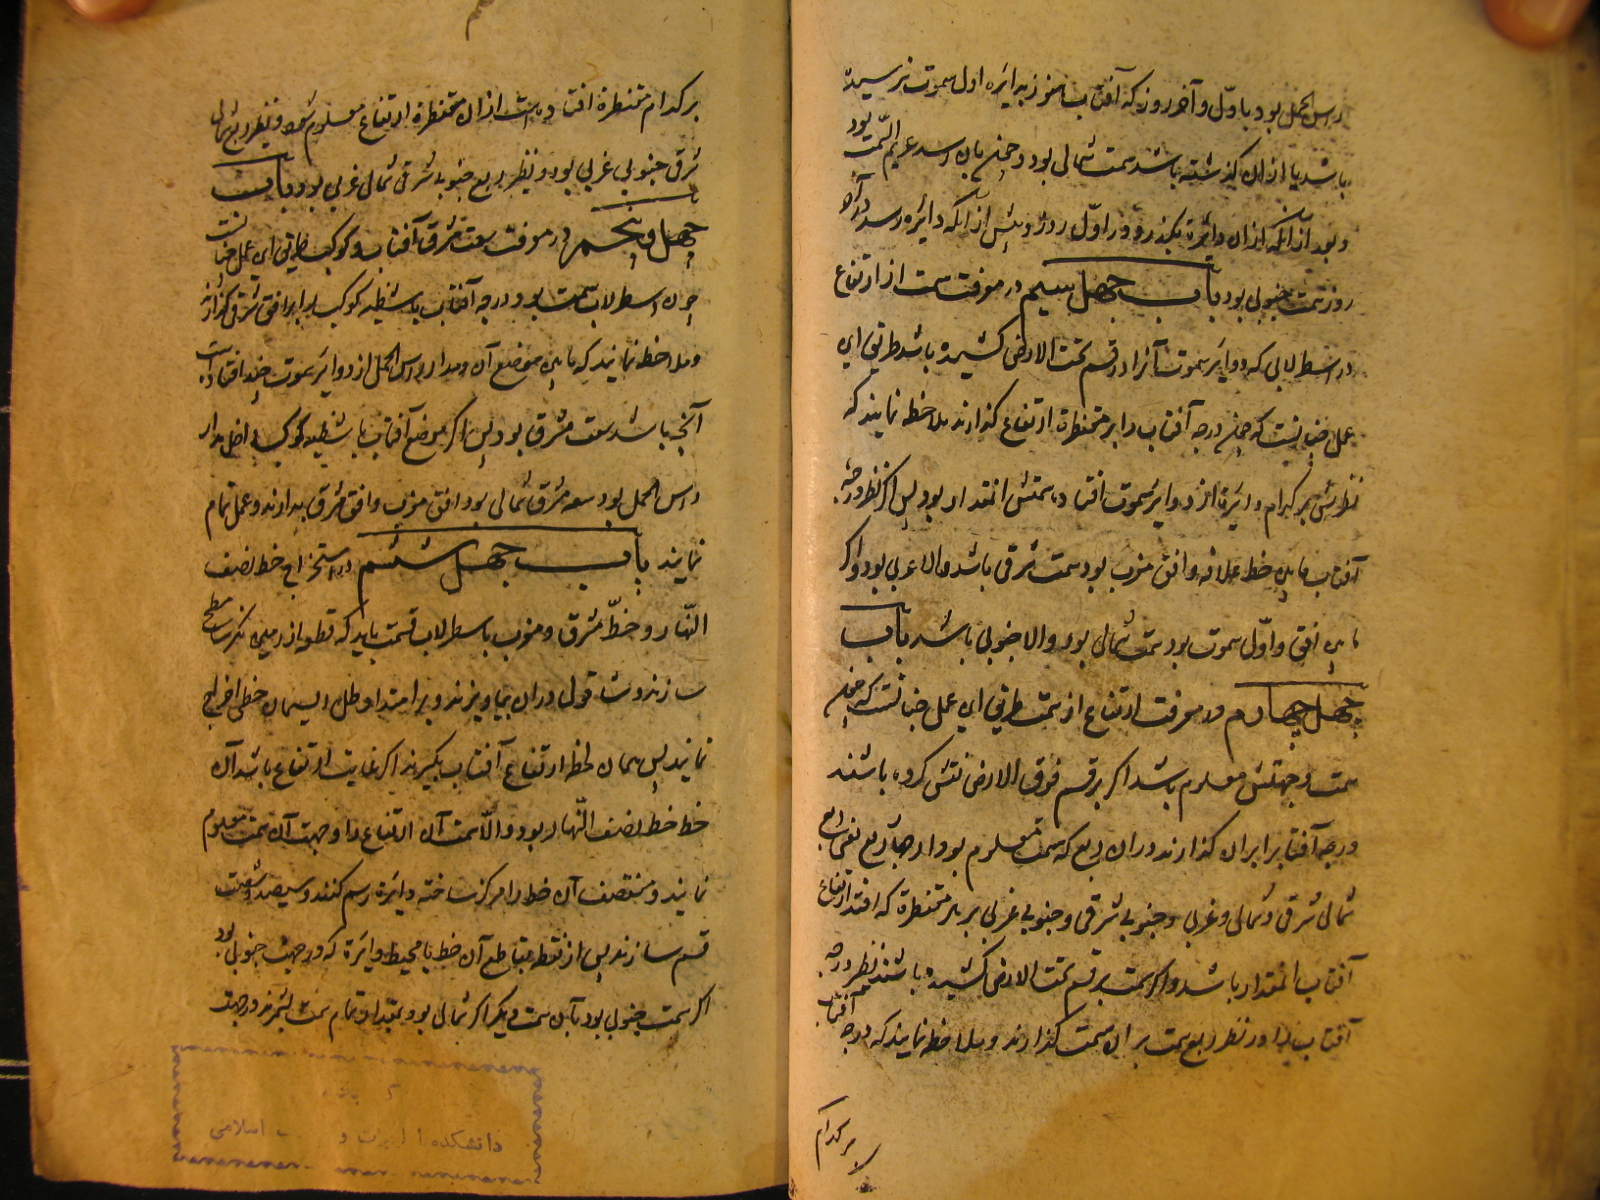 راس الحمل بود یا اول و آخر روز که آفتاب هنوز بدایره اول سموت نرسیده
باشد یا از ان کذشته باشد سمت شمالی بود و چون بان رسد عدیم السمت بود
و بعد از انکه از ان دایره بکذرد و در اول روز و پیش از انکه دایره رسد در آخر
روز سمت جنوبی بود باب چهل سیم در معرفت سمت از ارتفاع
در اسطرلابی که دوایر سموت آنرا در قسم تحت الارض کشیده باشد طریق این
عمل چنانست که چون درجه آفتاب را بر مقنطره ارتفاع کذارند ملاحظه نمایند که
نظیرش بر کدام دایره از دوایر سموت افتاده سمتش انمقدار بود پس اکر نظیر درجه
آفتاب مابین خط علاقه و افق مغرب بود سمت شرقی باشد والا غربی بود و اکر
مابین افق و اول سموت بود سمت شمالی بود والا جنوبی باشد باب
چهل چهارم در معرفت ارتفاع از سمت طریق این عمل چنانست که چون
سمت و جهتش معلوم باشد اکر بر قسم فوق الارض نقش کرده باشند
درجه آفتاب را بران کذارند در ان ربع که سمت معلوم بود از چهار ربع یعنی ربع
شمالی شرقی و شمالی و غربی و جنوبی شرقی و جنوبی غربی بر هر مقنطره که افتد ارتفاع
آفتاب انمقدار باشد و اکر سمت بر قسم تحت الارض کشیده باشند نظیر درجه
آفتاب را در نظیر ربع سمت بر ان سمت کذارند و ملاحظه نمایند که درجه آفتاب
بر کدام
بر کدام مقنطره افتاده است از ان مقنطره ارتفاع معلوم شود و نظیر ربع شمالی
شرقی جنوبی غربی بود و نظیر ربع جنوبی شرقی شمالی غربی بود باب
چهل و پنجم در معرفت سعت مشرق آفتاب و کوکب طریق این عمل چنانست
چون اسطرلاب سمت بود درجه آفتاب یا شظیه کوکب را بر افق شرقی کذارند
و ملاحظه نمایند که مابین موضع آن و مدار راس الحمل از دوایر سموت چند افتاده است
آنچه باشد سعت مشرق بود پس اکر موضع آفتاب یا شظیه کوکب داخل مدار
راس الحمل بود سعه مشرق شمالی بود افق مغرب و افق مشرق پندارند و عمل تمام
نمایند باب چهل ششم در استخراج خط نصف
النهار و خط مشرق و مغرب باسطرلاب قسمت باید که قطعه از زمین نیک مسطح
سازند و شاقول در ان بیاویزند و بر امتداد ظل ریسمان خطی اخراج
نمایند پس همان لحظه ارتفاع آفتاب بکیرند اکر غایت ارتفاع باشد آن
خط خط نصف النهار بود والا سمت آن ارتفاع را و جهت آن سمت معلوم
نمایند و منتصف آن خط را مرکز ساخته دایره رسم کنند و سیصد و شصت
قسم سازند پس از نقطه تقاطع آن خط با محیط دایره که در جهت جنوبی بود
اکر سمت جنوبی بود یا آن سمت دیکر اکر شمالی بود بمقدار تمام سمت بشمرند در جهت
دانشکده و اسلامی